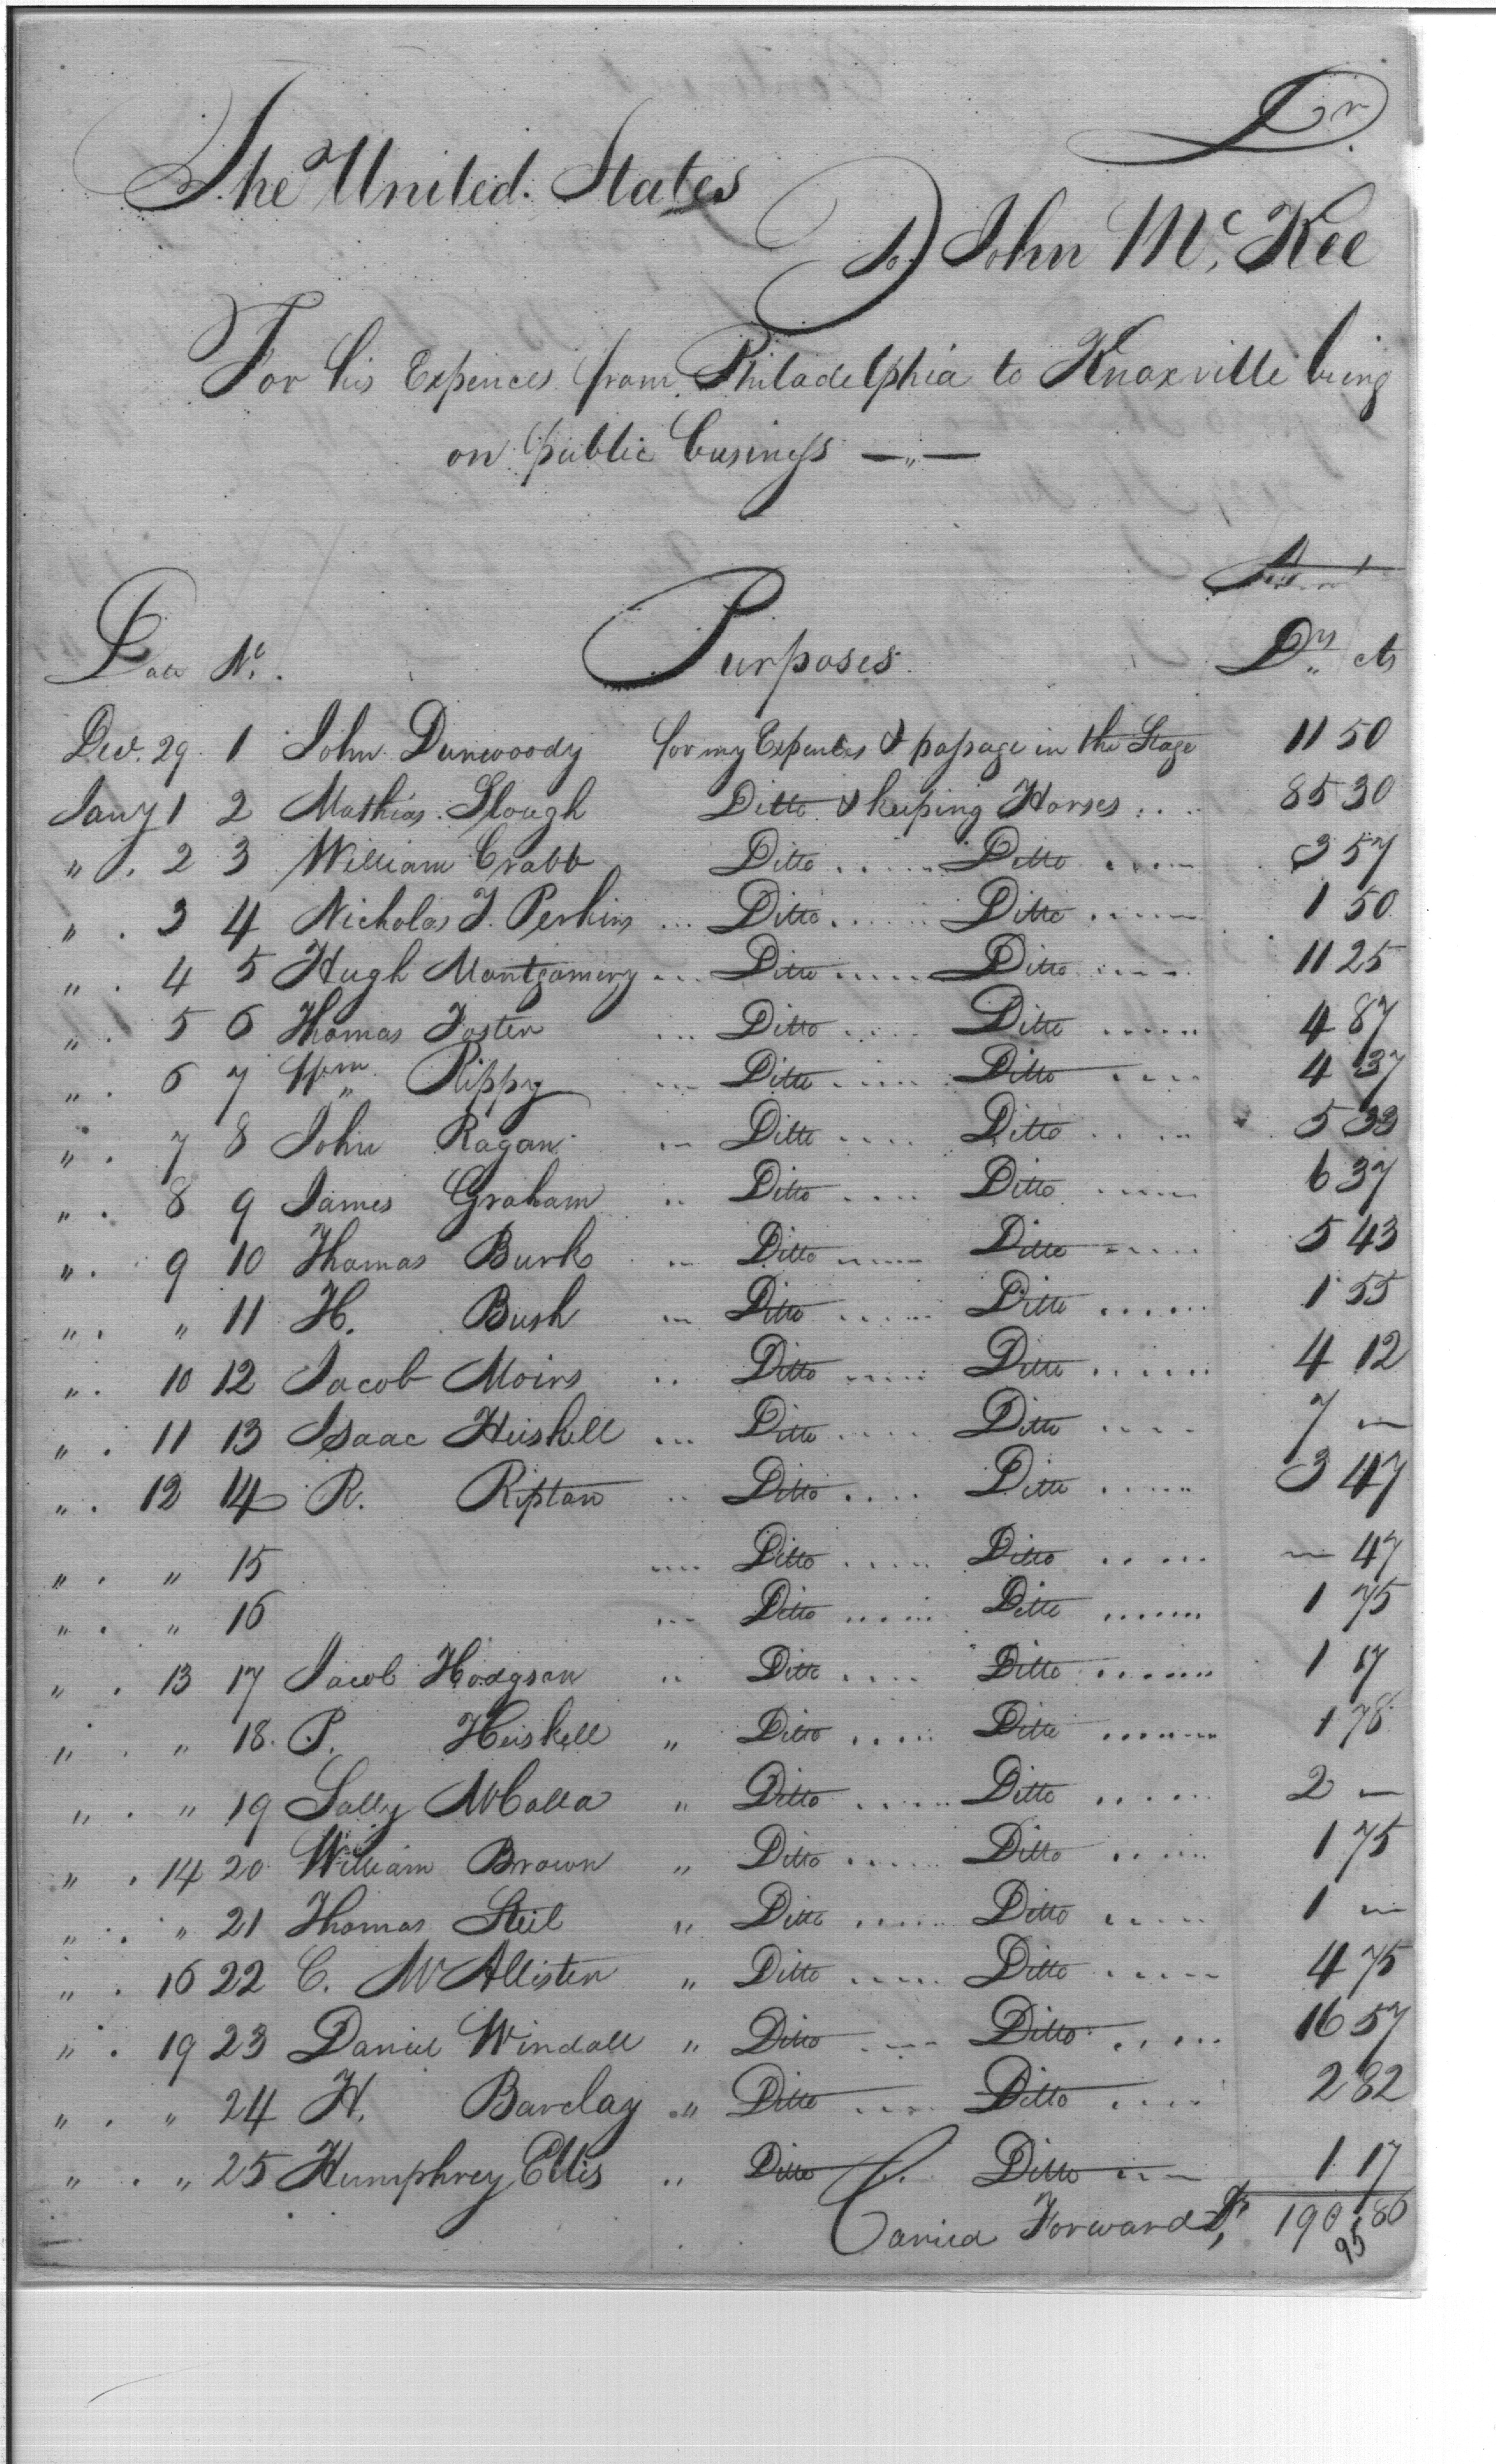 Dr.
The United States
To John McKee
For his Expences from Philadelphia to Knoxville being
on public business —〃—
Amt
Date No. Purposes Drs cts
Decr. 29 1 John Dunwoody for my Expences & passage in the Stage 11 50
Jany 1 2 Mathias Slough Ditto & keeping Horses 85 30
〃 . 2 3 William Crabb Ditto Ditto 3 57
〃 . 3 4 Nicholas J. Perkins Ditto Ditto 1 50
〃 . 4 5 Hugh Montgomery Ditto Ditto 11 25
〃 . 5 6 Thomas Foster Ditto Ditto 4 87
〃 . 6 7 Wm Rippy Ditto Ditto 4 37
〃 . 7 8 John Ragan Ditto Ditto 5 33
〃 . 8 9 James Graham Ditto Ditto 6 37
〃 . 9 10 Thomas Burk Ditto Ditto 5 43
〃 . 〃 11 H. Bush Ditto Ditto 1 55
〃 . 10 12 Jacob Moirs Ditto Ditto 4 12
〃 . 11 13 Isaac Heiskell Ditto Ditto 7 —
〃 . 12 14 R. Riptan Ditto Ditto 3 47
〃 . 〃 15 Ditto Ditto — 47
〃 . 〃 16 Ditto Ditto 1 75
〃 . 13 17 Jacob Hodgson Ditto Ditto 1 17
〃 . 〃 18 P. Heiskell 〃 Ditto Ditto 1 78
〃 . 〃 19 Sally McCalla 〃 Ditto Ditto 2 —
〃 . 14 20 William Brown 〃 Ditto Ditto 1 75
〃 . 〃 21 Thomas Steil 〃 Ditto Ditto 1 —
〃 . 16 22 C. McAllister 〃 Ditto Ditto 4 75
〃 . 19 23 Daniel Windall 〃 Ditto Ditto 16 57
〃 . 〃 24 H. Barclay 〃 Ditto Ditto 2 82
〃 . 〃 25 Humphrey Ellis 〃 Ditto Ditto 1 17
Carried Forward Drs, 190 86
95